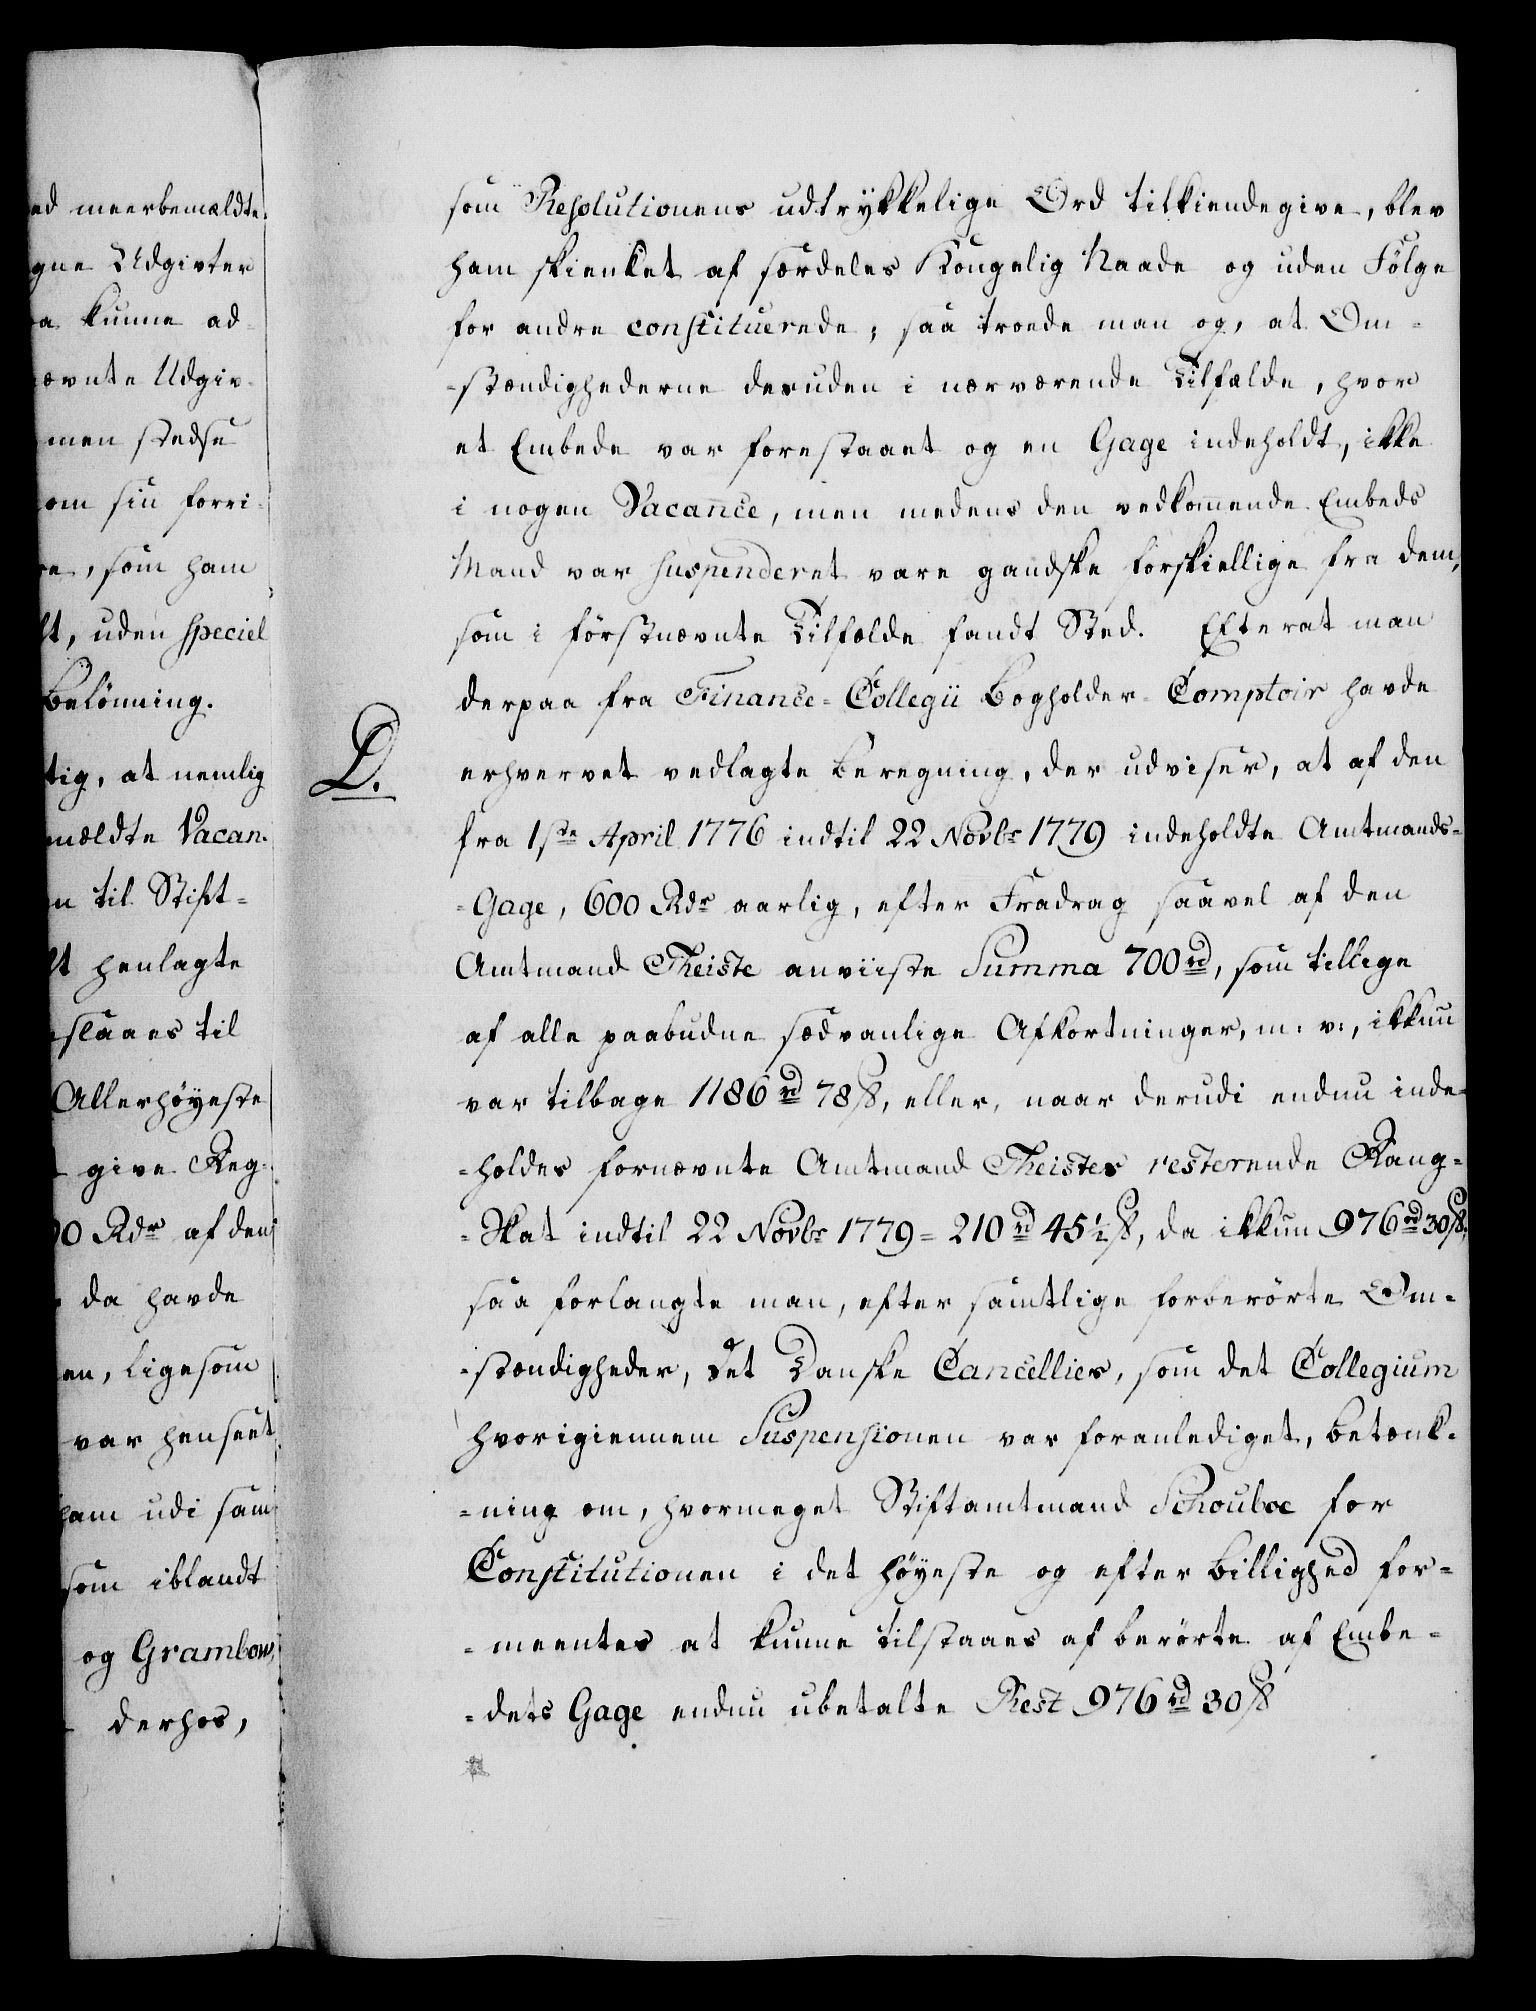 ed meerbemældte
gne Udgivter
a kunne ad-
nævnte Udgiv-
men stedse
om sin forri-
re, som ham
lt, uden speciel
Belönning.
tig, at nemlig
mældte Vacan-
n til Stift-
lt henlagte
slaaes til
Allerhöyeste
give Reg-
0 Rdr af den
da havde
en, ligesom
var henseet
ham udi sam
som iblandt
og Grambow,
derhos,
som Resolutionens udtrÿkkelige Ord tilkiendegive, blev
ham skienket af særdeles Kongelig Naade og uden Fölge
for andre constituerede; saa troede man og, at Om-
-stændighederne desuden i nærværende Tilfælde, hvor
et Embede var forestaaet og en Gage indeholdt, ikke
i nogen Vacance, men medens den vedkommende Embeds
Mand var suspenderet vare gandske forskiellige fra dem,
som i förstnævnte Tilfælde fandt Sted. Efterat man
derpaa fra Finance-Collegii Bogholder-Comptoir havde
D.
erhvervet vedlagte Beregning, der udviser, at af den
fra 1ste April 1776 indtil 22 Novbr 1779 indeholdte Amtmands-
-Gage, 600 Rdr aarlig, efter Fradrag saavel af den
Amtmand Theiste anviiste Summa 700 rd, som tillige
af alle paabudne sædvanlige Afkortninger, m: v:, ikkun
var tilbage 1186 rd 78 ß, eller, naar derudi endnu inde-
-holdes fornævnte Amtmand Theistes resterende Rang-
-Skat indtil 22 Novbr 1779 = 210 rd 45½ ß, da ikkun 976 rd 30 ß,
saa forlangte man, efter samtlige forberörte Om-
-stændigheder, Det Danske Cancellies, som det Collegium
hvorigiennem Suspensionen var foranlediget, Betænk-
-ning om, hvormeget Stiftamtmand Schouboe for
Constitutionen i det höyeste og efter Billighed for-
-meentes at kunne tilstaaes af berörte af Embe-
-dets Gage endnu ubetalte Rest 976 rd 30 ß